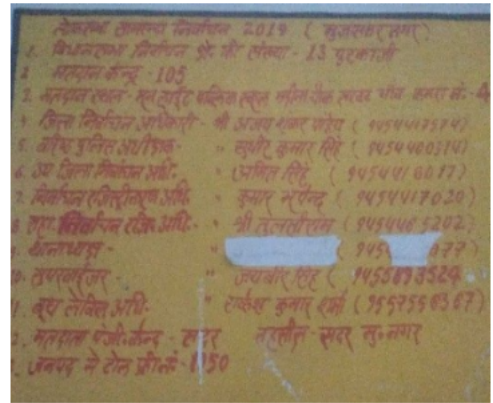 लोकसभा सामान्य निर्वाचन 2019 ( मुजफ्फर नगर )
1. विधानसभा निर्वाचन क्षेत्र की संख्या - 13 पुरकाजी
2 मतदान केन्द्र - 105
3. मतदान स्थल - पब्लिक स्कूल कमरा नं.-
4 जिला निर्वाचन अधिकारी - श्री अजय शंकर पाण्डेय ( 9454417574)
5. वरिष्ठ पुलिस अधीक्षक - " सुधीर कुमार सिंह ( 9454400314)
6. उप जिला निर्वाचन अधि.- " अमित सिंह ( 9454418017)
7. निर्वाचन रजिस्ट्रीकरण अधि. " कुमार भूपेन्द्र ( 9454417020)
8 सहा. निर्वाचन रजि. अधि.- श्री
9. थानाध्यक्ष - " 9454 077)
10. सुपरवाईजर - " जयवीर सिंह (
11. बूथ लेविल अधि.- " राकेश कुमार शर्मा (
2. मतदाता पंजी. केन्द्र - सदर तहसील - सदर मु० नगर
3. जनपद मे टोल फ्री नं.- 1950